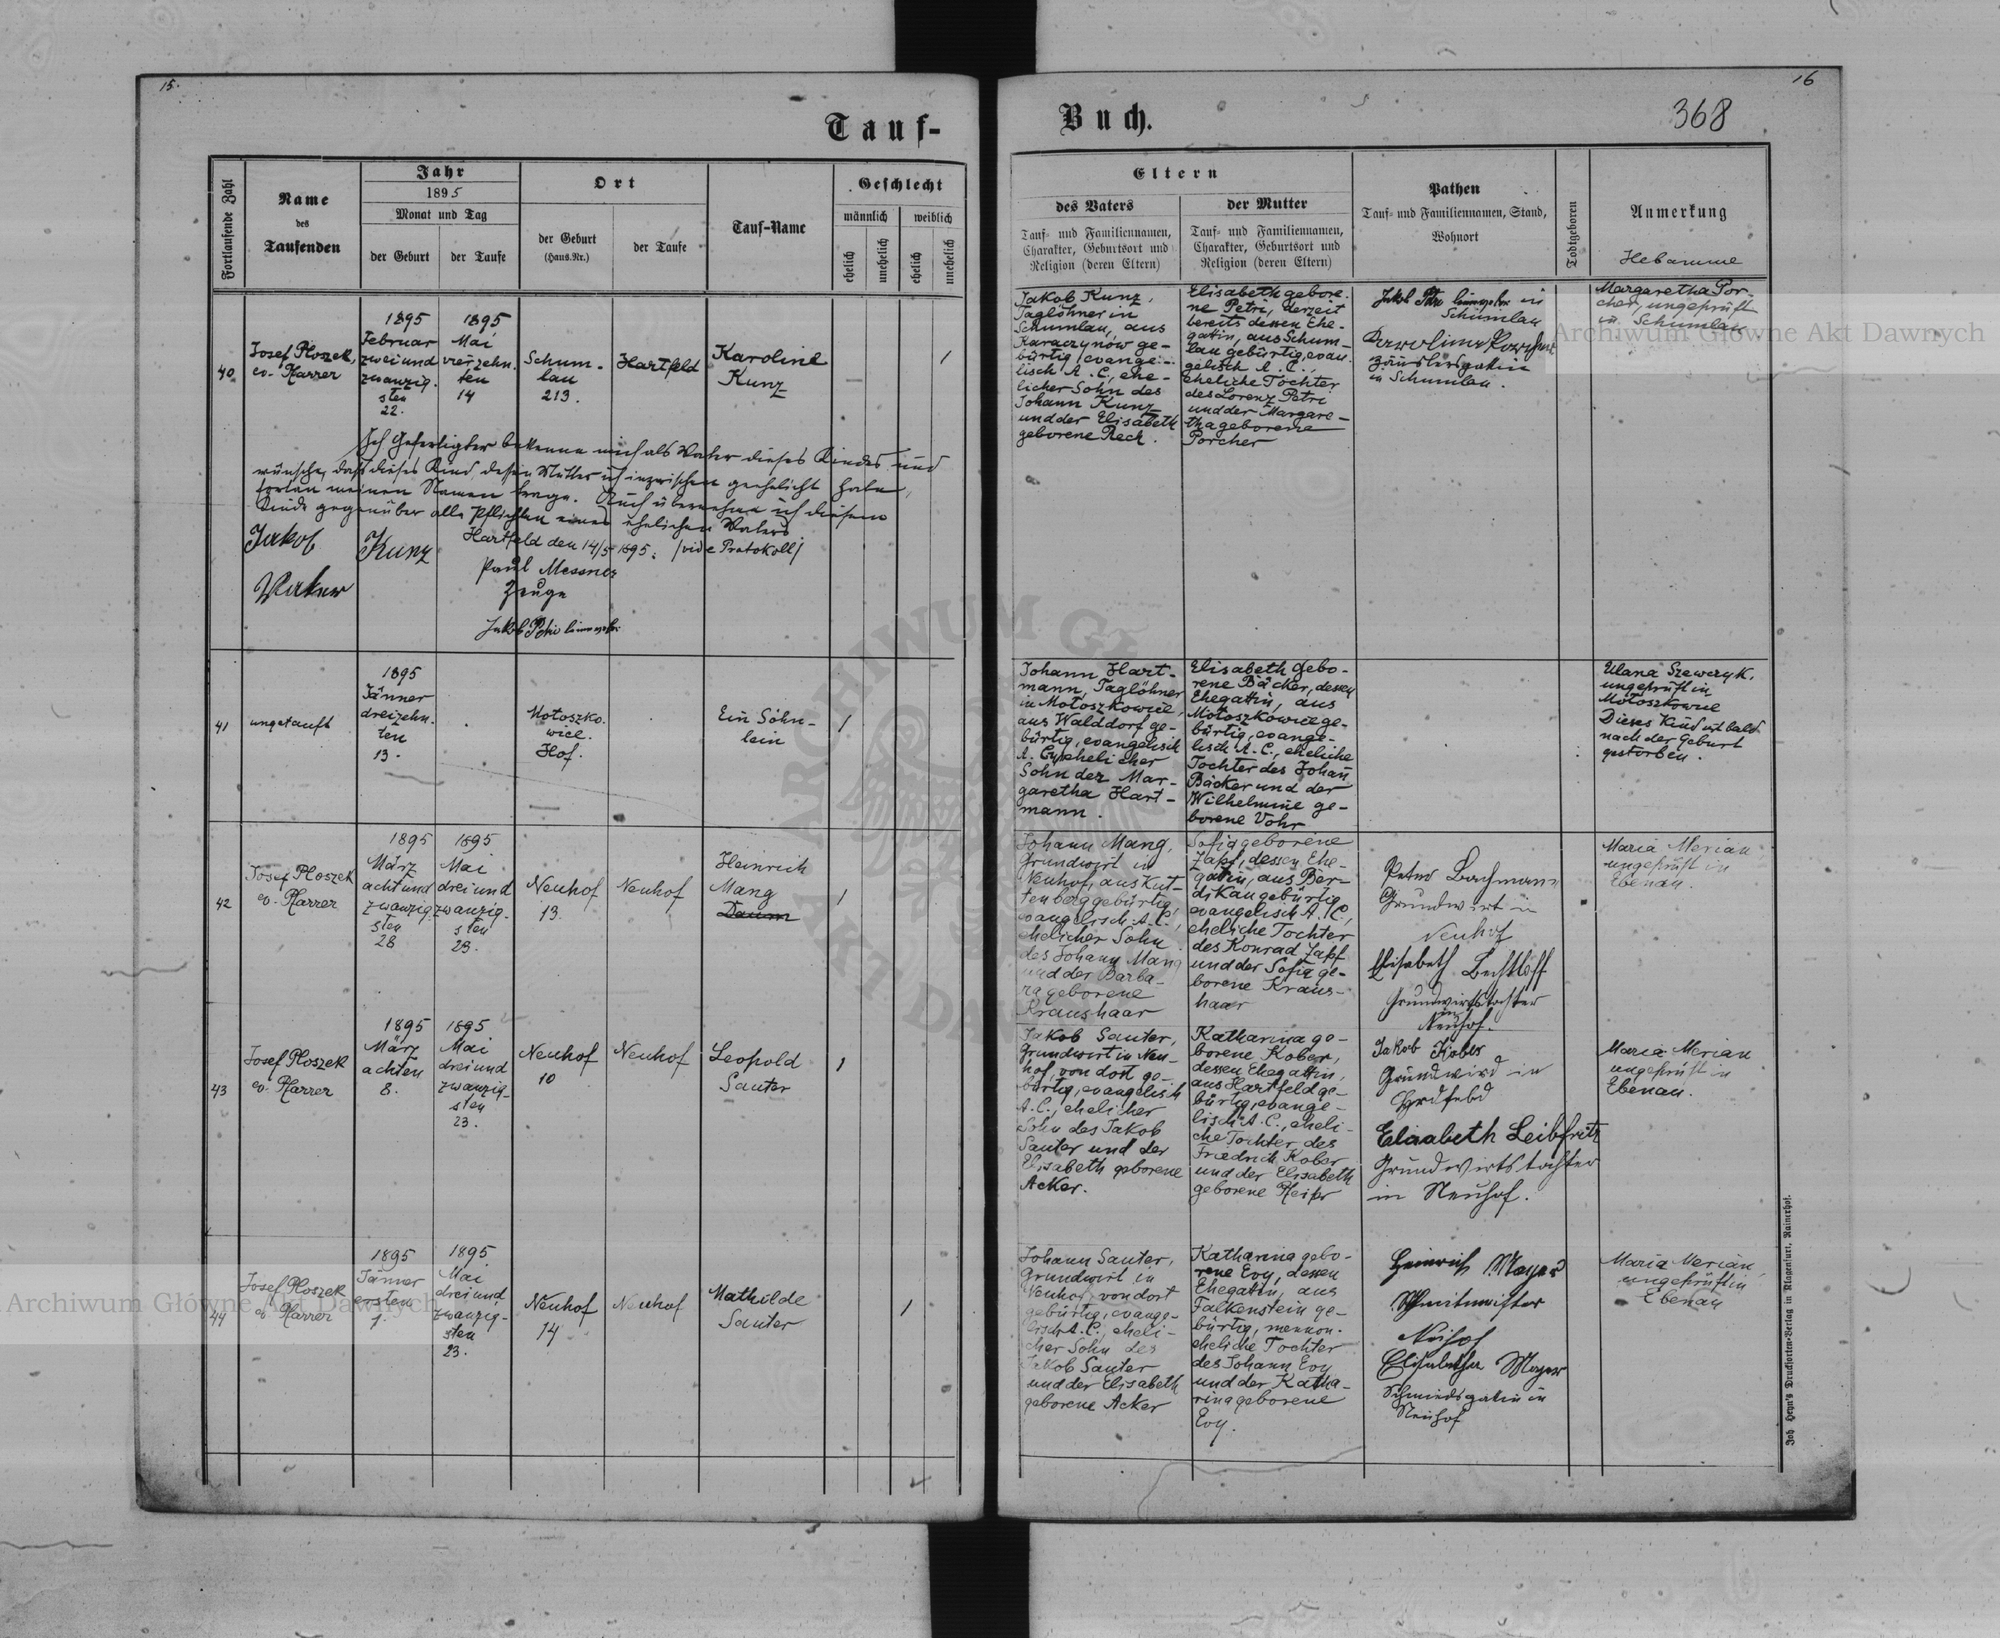 15.
16
Tauf-
Buch.
368
Fortlaufende Zahl
Name
des
Taufenden
Jahr
1895
Monat und Tag
der Geburt
der Taufe
Ort
der Geburt
(Haus.Nr.)
der Taufe
Tauf-Name
Geschlecht
männlich
weiblich
ehelich
unehelich
ehelich
unehelich
Eltern
des Vaters
Tauf- und Familiennamen,
Charakter, Geburtsort und
Religion (deren Eltern)
der Mutter
Tauf- und Familiennamen,
Charakter, Geburtsort und
Religion (deren Eltern)
Pathen
Tauf- und Familiennamen, Stand,
Wohnort
Todtgeboren
Anmerkung
Hebamme
40
Josef Ploszek,
ev. Pfarrer
1895
Februar
zwei und
zwanzig.
sten
22.
1895
Mai
vierzehn.
ten
14
Schum-
lau
213.
Hartfeld
Karoline
Kunz
/
Jakob Kunz,
Taglöhner in
Schumlau, aus
Karaczynów ge-
bürtig, evange-
lisch A. C., ehe-
licher Sohn des
Johann Kunz
und der Elisabeth
geborene Rech.
Elisabeth gebore-
ne Petri, derzeit
bereits dessen Ehe-
gattin, aus Schum-
lau gebürtig, evan.
gelisch A. C.,
eheliche Tochter
des Lorenz Petri
und der Margare-
tha geborene
Porcher
Jakob Petri in
Schumlau
in Schumlau.
Margaretha Por-
cher, ungeprüft
in Schumlau
Ich Gefertigter bekenne mich als Vater dieses Kindes und
wünsche, daß dieses Kind, dessen Mutter ich inzwischen geehelicht habe,
fortan meinen Namen trage. Auch übernehme ich diesem
Kinde gegenüber alle Pflichten eines ehelichen Vaters
Hartfeld den 14/5 1895. /vide Protokoll/
Jakob Kunz
Vater
Paul Messner
Zeuge
Jakob Petri
41
ungetauft
1895
Jänner
dreizehn.
ten
13.
Motoszko.
wice.
Hof.
Ein Söhn-
lein
/
Johann Hart-
mann, Taglöhner
in Motoszkowice,
aus Walddorf ge-
bürtig, evangelisch
A. C., unehelicher
Sohn der Mar-
garetha Hart-
mann.
Elisabeth gebo-
rene Bäcker, dessen
Ehegattin, aus
Motoszkowice ge-
bürtig, evange-
lisch A. C., eheliche
Tochter des Johan
Bäcker und der
Wilhelmine ge-
borene Vohr
Ulana Szewczyk.
ungeprüft in
Motoszkowice
Dieses Kind ist bald
nach der Geburt
gestorben.
42
Josef Ploszek
ev. Pfarrer
1895
März
acht und
zwanzig.
sten
28
1895
Mai
drei und
zwanzig.
sten
23.
Neuhof
13.
Neuhof
Heinrich
Mang
Daum
/
Johann Mang,
Grundwirt in
Neuhof, aus Kut-
tenberg gebürtig,
evangelisch A. C.,
ehelicher Sohn
des Johann Mang
und der Barba-
ra geborene
Kraushaar
Sofia geborene
Zapf, dessen Ehe-
gattin, aus Ber-
dikau gebürtig,
evangelisch A. C.,
eheliche Tochter
des Konrad Zapf
und der Sofia ge-
borene Kraus-
haar
Peter Bachmann
Grundwirt in
Neuhof
Elisabeth Bechtloff
Grundwirtstochter
in
Neuhof.
Maria Merian
ungeprüft in
Ebenau.
43
Josef Ploszek
ev. Pfarrer
1895
März
achten
8.
1895
Mai
drei und
zwanzig-
sten
23.
Neuhof
10
Neuhof
Leopold
Sauter
1
Jakob Sauter,
Grundwirt in Neu-
hof, von dort ge-
bürtig, evangelisch
A. C., ehelicher
Sohn des Jakob
Sauter und der
Elisabeth geborene
Acker.
Katharina ge-
borene Kober,
dessen Ehegattin,
aus Hartfeld ge-
bürtig, evange-
lisch A. C., eheli-
che Tochter des
Friedrich Kober
und der Elisabeth
geborene
Jakob Kober
Grundwird in
Elisabeth Leibfritz
Grundwirtstochter
in Neuhof.
Maria Merian
ungeprüft in
Ebenau.
44
Josef Ploszek
ev. Pfarrer
1895
Jänner
ersten
1.
1895
Mai
drei und
zwanzig-
sten
23.
Neuhof
14
Neuhof
Mathilde
Sauter
1
Johann Sauter,
Grundwirt in
Neuhof, von dort
gebürtig, evange-
lisch A. C., eheli-
cher Sohn des
Jakob Sauter
und der Elisabeth
geborene Acker
Katharina gebo-
rene Evy, dessen
Ehegattin, aus
Falkenstein ge-
bürtig, mennon.
eheliche Tochter
des Johann Evy
und der Katha-
rina geborene
Evy.
Heinrich Mayer
Schmitmeister
Neihof
Elisabetha Mayer
Schmiedsgatin in
Neuhof
Maria Merian,
ungeprüft in
Ebenau
Joh Heyn's Drucksorten-Verlag in Klagenfurt, Rainerhof.
Archiwum Główne Akt Dawnych
Archiwum Główne Akt Dawnych
ARCHIWUM GŁÓWNE AKT DAWNYCH